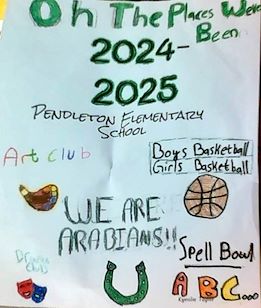 Oh The Places We've
Been
2024-
2025
PENDLETON ELEMENTARY
SCHOOL
Art Club
Boys Basketball
Girls Basketball
WE ARE
ARABIANS!!
Drama
Club
Spell Bowl
ABC...